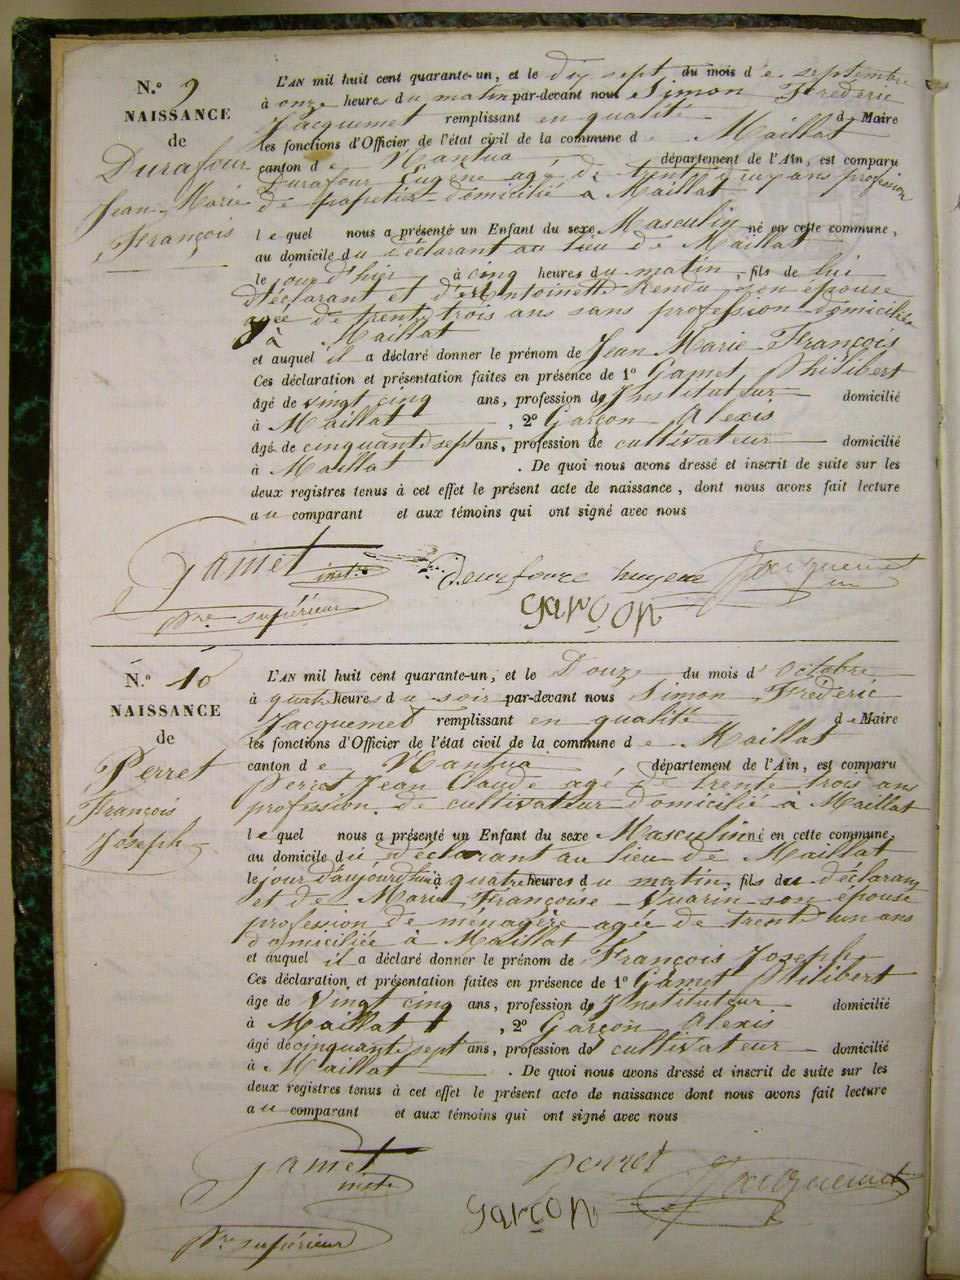 N.o 9
NAISSANCE
de
Durafour
Jean-Marie
François
L'AN mil huit cent quarante-un, et le dix sept du mois de septembre
à onze heures du matin par-devant nous Simon Frédéric
Jacquemet remplissant en qualité de Maire
les fonctions d'Officier de l'état civil de la commune de Maillat
canton de Nantua département de l'Ain, est comparu
Durafour Eugène agé de trente deux ans profession
de papetier domicilié à Maillat
lequel nous a présenté un Enfant du sexe Masculin né en cette commune,
au domicile du déclarant au lieu de Maillat
le jour d'hier à cinq heures du matin, fils de lui
déclarant et d'Antoinette Rendu son épouse
agée de trente trois ans sans profession domiciliée
à Maillat
et auquel il a déclaré donner le prénom de Jean Marie François
Ces déclaration et présentation faites en présence de 1o Gamet Philibert
âgé de vingt cinq ans, profession d'Instituteur domicilié
à Maillat, 2o Garçon Alexis
âgé de cinquante sept ans, profession de cultivateur domicilié
à Maillat. De quoi nous avons dressé et inscrit de suite sur les
deux registres tenus à cet effet le présent acte de naissance, dont nous avons fait lecture
au comparant et aux témoins qui ont signé avec nous
Gamet inst. durafour Jacquemet
supérieur garçon
N.o 10
NAISSANCE
de
Perret
François
Joseph
L'AN mil huit cent quarante-un, et le Douze du mois d'Octobre
à quatre heures du soir par-devant nous Simon Frédéric
Jacquemet remplissant en qualité de Maire
les fonctions d'Officier de l'état civil de la commune de Maillat
canton de Nantua, département de l'Ain, est comparu
Perret Jean Claude agé de trente trois ans
profession de cultivateur domicilié à Maillat
lequel nous a présenté un Enfant du sexe Masculin né en cette commune,
au domicile du déclarant au lieu de Maillat
le jour d'aujourd'hui à quatre heures du matin, fils du déclarant
et de Marie Françoise Vuarin son épouse
profession de ménagère agée de trente un ans
domiciliée à Maillat
et auquel il a déclaré donner le prénom de François Joseph
Ces déclaration et présentation faites en présence de 1o Gamet Philibert
âgé de Vingt cinq ans, profession d'Instituteur domicilié
à Maillat, 2o Garçon Alexis
âgé de cinquante sept ans, profession de cultivateur domicilié
à Maillat. De quoi nous avons dressé et inscrit de suite sur les
deux registres tenus à cet effet le présent acte de naissance dont nous avons fait lecture
au comparant et aux témoins qui ont signé avec nous
Gamet inst. perret Jacquemet
garçon
supérieur